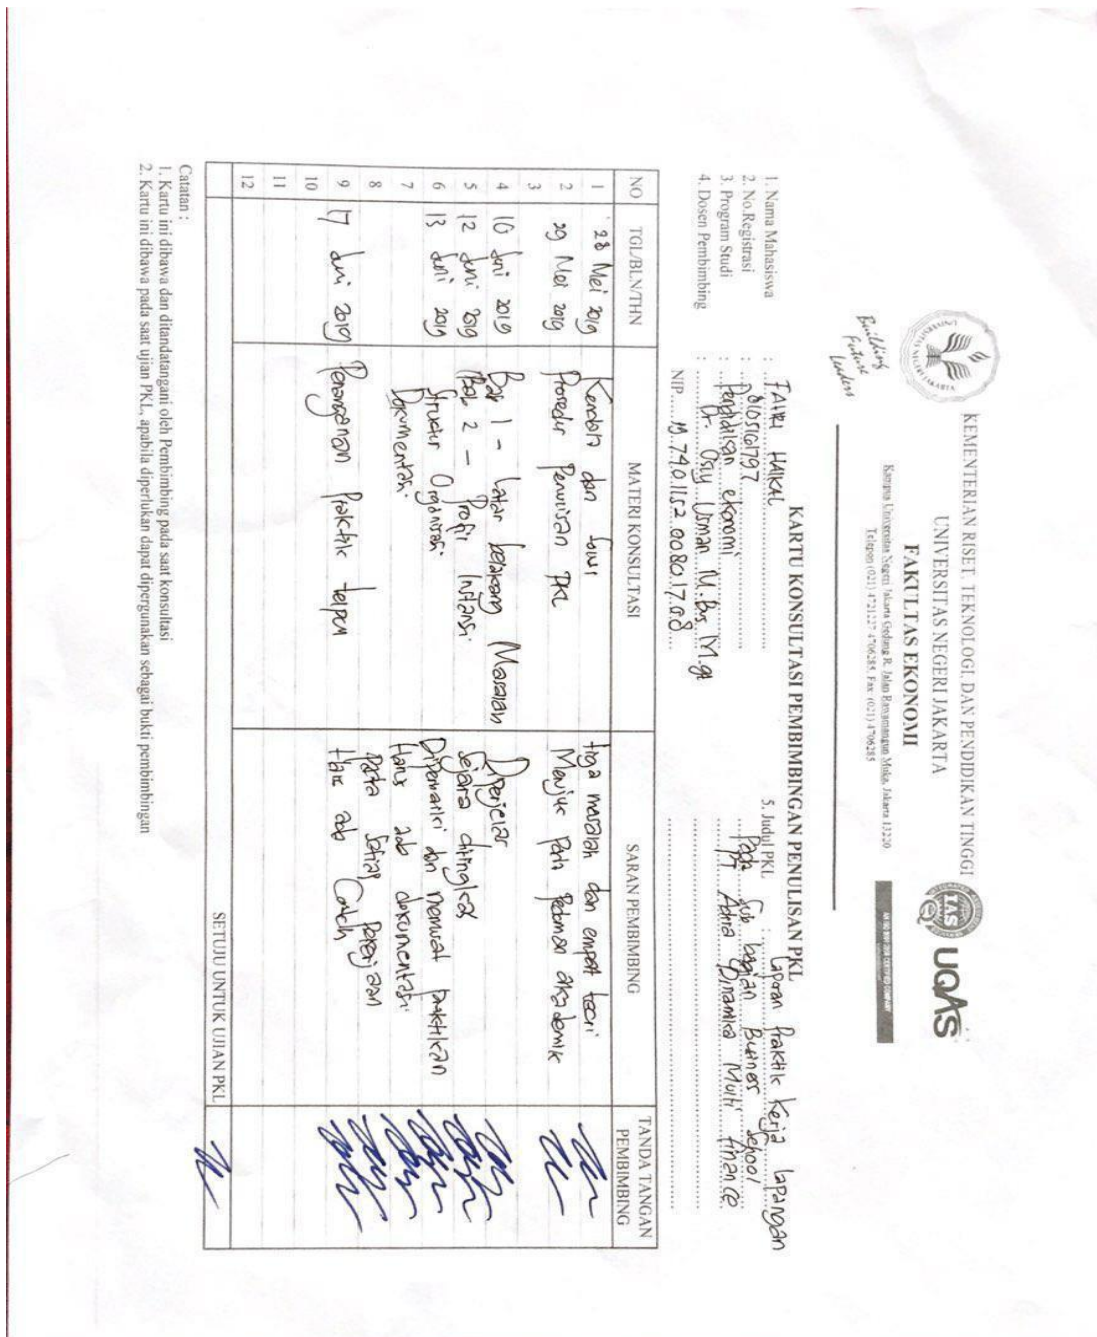 KEMENTERIAN RISET, TEKNOLOGI, DAN PENDIDIKAN TINGGI
UNIVERSITAS NEGERI JAKARTA
FAKULTAS EKONOMI
Kampus Universitas Negeri Jakarta Gedung R, Jalan Rawamangun Muka, Jakarta 13220
Telepon (021) 4721227/4706285, Fax: (021) 4706285
UNIVERSITAS NEGERI JAKARTA
Building
Future
Leaders
TAS
UQAS
KARTU KONSULTASI PEMBIMBINGAN PENULISAN PKL
1. Nama Mahasiswa : FAHRI HAIKAL
2. No.Registrasi : 8105161797
3. Program Studi : Pendidikan ekonomi
4. Dosen Pembimbing : Dr. Osly Usman M.Bs M.gt
NIP. 19.740.115.2.0080.17.08
5. Judul PKL : Laporan Praktik Kerja Lapangan
Pada Sub bagian Business School
PT Adira Dinamika Multi Finance
NO TGL/BLN/THN MATERI KONSULTASI SARAN PEMBIMBING TANDA TANGAN PEMBIMBING
1 28 Mei 2019 Kendala dan tiga masalah dan empat teori
2 29 Mei 2019 Prosedur Penulisan PKL Merujuk Pada Pedoman akademik
3
4 10 Juni 2019 Bab 1 - Latar belakang Masalah Diperjelas
5 12 Juni 2019 Bab 2 - Profil Instansi Sejarah disingkat
6 13 Juni 2019 Struktur Organisasi Diperbaiki dan memuat praktikan
7 Dokumentasi Harus ada dokumentasi
8 Pada Setiap Pekerjaan
9 17 Juni 2019 Penanganan Praktik telpon Harus ada Contoh
10
11
12
SETUJU UNTUK UJIAN PKL
Catatan :
1. Kartu ini dibawa dan ditandatangani oleh Pembimbing pada saat konsultasi
2. Kartu ini dibawa pada saat ujian PKL, apabila diperlukan dapat dipergunakan sebagai bukti pembimbingan